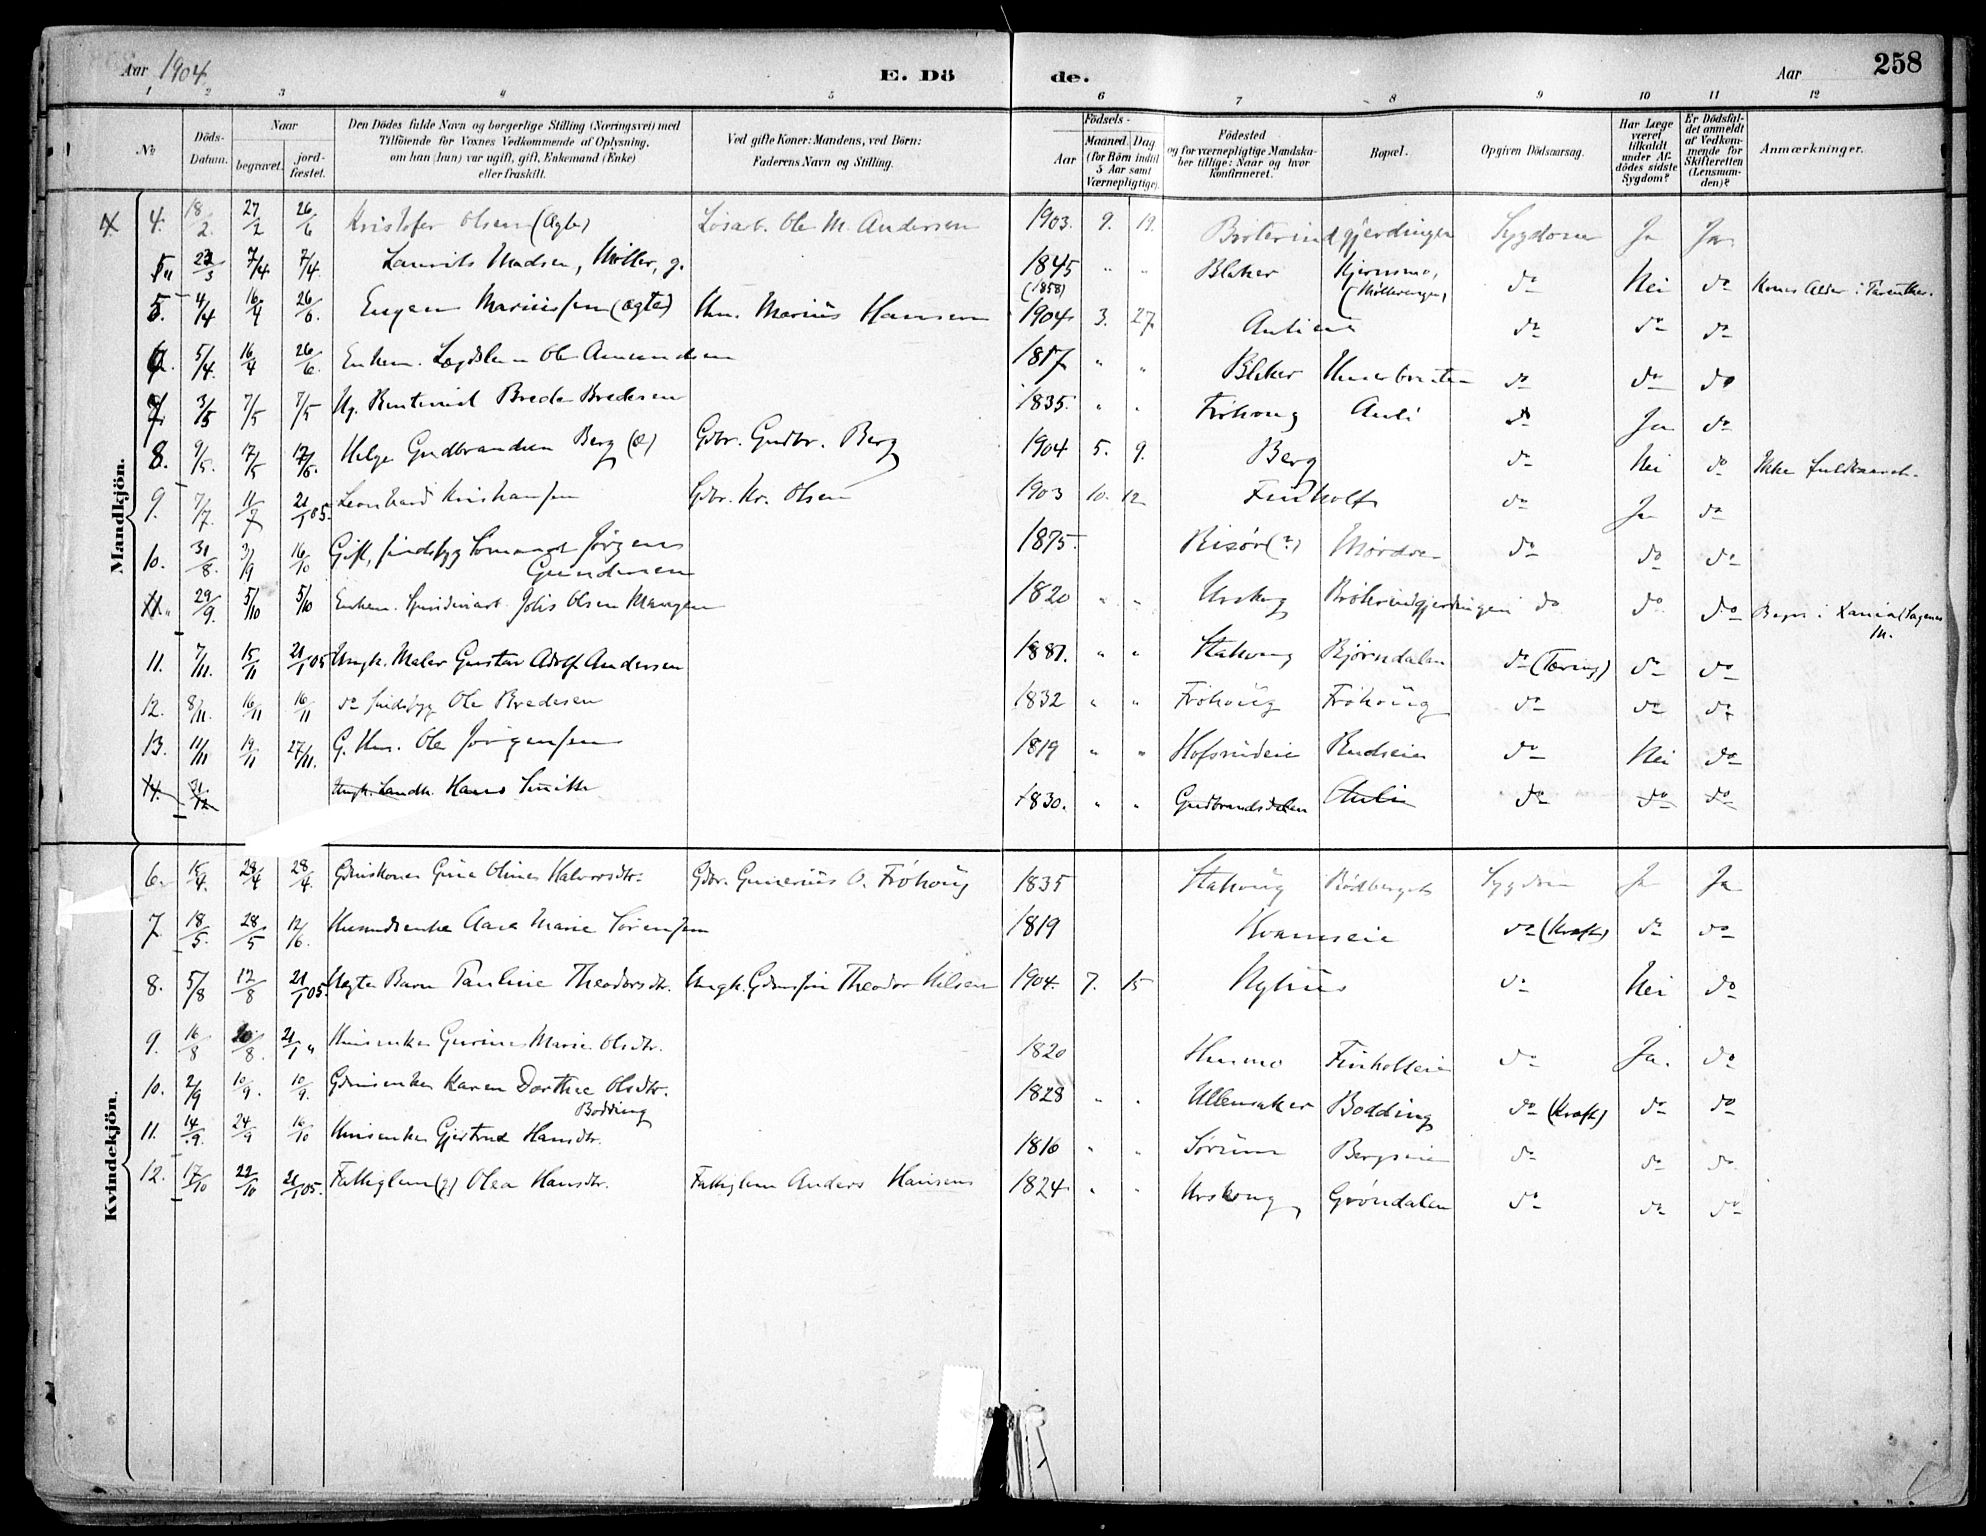 Aar 1904. E. Dö de. Aar 258
1 2 3 4 5 6 7 8 9 10 11 12
No
Döds-Datum.
Naar begravet. jord-fæstet.
Den Dödes fulde Navn og borgerlige Stilling (Næringsvei) med Tilföiende for Voxnes Vedkommende af Oplysning, om han (hun) var ugift, gift, Enkemand (Enke) eller fraskilt.
Ved gifte Koner: Mandens, ved Börn: Faderens Navn og Stilling.
Födsels- Aar Maaned. Dag (for Börn indtil 5 Aar samt Værnepligtige).
Födested og for værnepligtige Mandskaber tillige: Naar og hvor konfirmeret.
Bopæl.
Opgiven Dödsaarsag.
Har Læge været tilkaldt under Afdödes sidste Sygdom?
Er Dödsfaldet anmeldt af Vedkommende for Skifteretten (Lensmanden)?
Anmærkninger.
Mandkjön.
4. 18/2. 27/2 26/6 Kristofer Olsen (Ægte) Løsarb. Ole M. Andersen 1903. 9. 19. Sygdom Ja Ja
7/4 7/4. Laurits Madsen, Møller, g. 1845 (1858) " " Blaker Kjernsmo, do Nei do
5. 4/4 16/4 26/6. Eugen Mariussen (ægte) Hm. Marius Hansen 1904 3. 27. do do do
5/4. 16/4 26/6. Enkem. Lægdslem Ole Amundsen 1817 " " Blaker do do do
7. 3/5 7/5 7/5 Ug. Brede Bredesen 1835. " " Frøhoug Auli do Ja do
8. 9/5. 17/5 17/5. Helge Gudbrandsen Berg (æ) Gbr. Gudbr. Berg 1904 5. 9. Berg do Nei do Ikke fuldbaaret.
9. 7/7. 11/7 21/1 05. Leonhard Kristiansen Gbr. Kr. Olsen 1903 10. 12 Finholt do Ja do
10. 31/8. 3/9 16/10 Gift, Jørgen Gundersen 1875. Risør(?) do do do
11. 29/9. 5/10 5/10 Enkem. Olsen Mangen 1820 " " Urskog do do do
11. 7/11. 15/11 21/1 05 Ungk. Maler Gustav Adolf Andersen 1881. " " Stahoug Bjørndalen do (Tæring) do do
12. 8/11. 16/11 16/11 do Ole Bredesen 1832 " " Frøhoug Frøhoug do do do
13. 11/11 19/11 27/11. G. Hm. Ole Jørgensen 1819 " " Rudseie do Nei do
14. 31/12 Ungk. Landh. Hans Smith 1830. " " Gudbrandsdalen Auli do do do
Kvindekjön.
6. 15/4. 28/4 28/4. Gdmskone Gina Oline Halvorsdtr. Gbr. Gunerius O. Frøhoug 1835 Stahoug Rødberget Sygdom Ja Ja
7. 18/5. 28/5 12/6. Husmdsenke Aase Marie Sørensen 1819 Kvamseie do (Kræft) do do
8. 5/8 12/8 21/1 05. Uægte Barn Pauline Theodorsdtr. Ungk. Gdmssøn Theodor Nilsen 1904. 7. 15 Nyhus do Nei do
9. 16/8 20/8. 21/1 " Hmsenke Gurine Marie Olsdtr. 1820 Husmo Finholteie do Ja. do
10. 2/9 10/9. 10/9. Gdmsenke Karen Dorthee Olsdtr. Bodding 1828 " " Ullensaker Bodding do (Kræft) do do
11. 14/9. 24/9 16/10 Hmsenke Gjertrud Hansdtr. 1816 " " Sørum Bergseie do do do
12. 17/10 22/10 21/1 05. Fattiglem (g) Olea Hansdtr. Fattiglem Anders Hansen 1824 " " Urskoug Grøndalen do do do